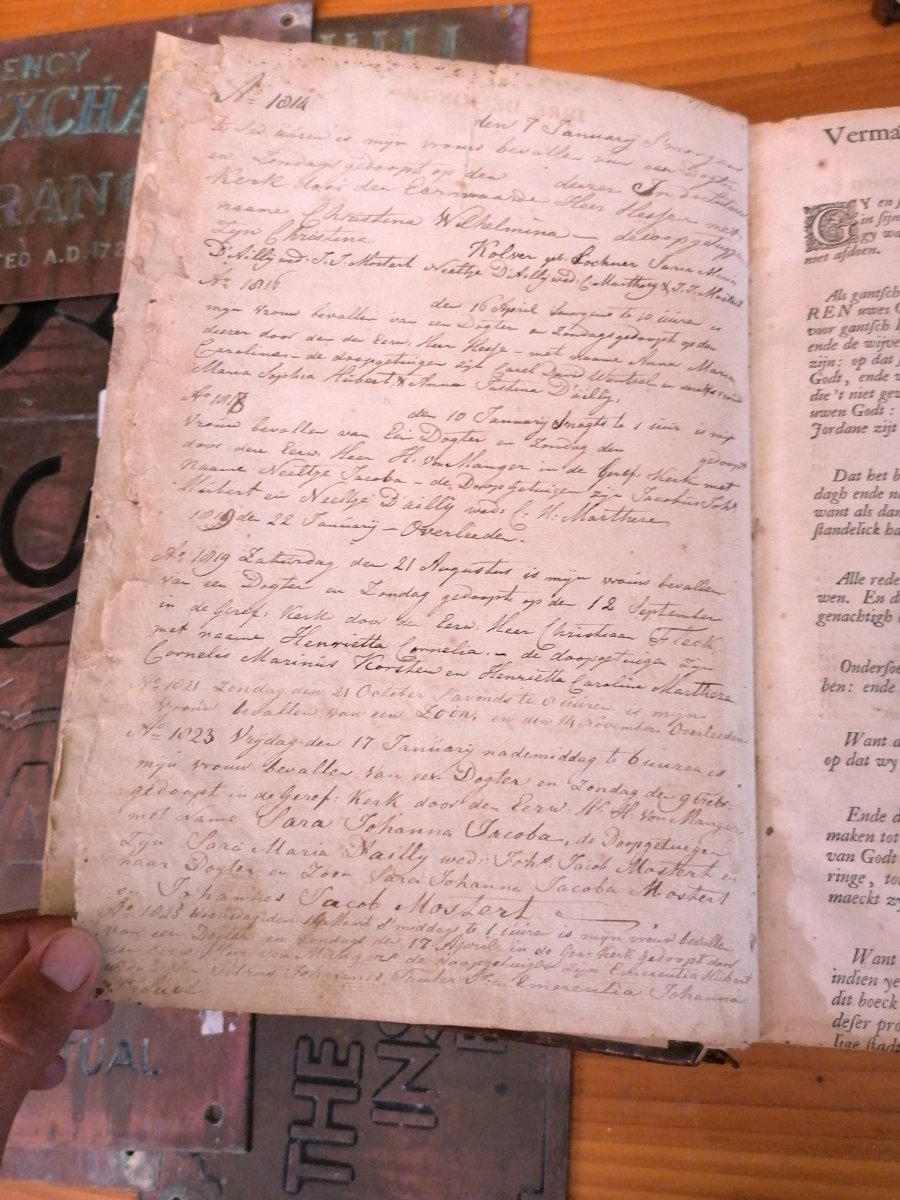 ENCY
EXCHA
RANC
TED A.D. 172
Ao 1814
den 7 Januarij Smorgens
te ses uuren is mijn vrouw bevallen van een Dogter
en Zondags gedoopt op den deezer in de
Kerk door den Eerwaarde Heer Hesse met
naame Christina Wilhelmina — de doopgetuijgen
Zijn Christina Kolver geb: Lochner Sara Maria
D'Ailly wed: J. J. Mostert Neeltje D'Ailly wed: C. Marthers & J. J. Mostert
Ao 1816
den 16 April Smorgens te 10 uuren is
mijn Vrouw bevallen van een Dogter en Zondags gedoopt op den
deezer door den Eerw: Heer Hesse — met naame Anna Maria
Carolina — de doopgetuigen zijn Carel David Wentzel en
Maria Sophia Hubert, & Anna Justina D'ailly.
Ao 1818
den 10 Januarij Snagts te 1 uur is mijn
Vrouw bevallen van Een Dogter en Zondag den gedoopt
door dere Eerw. Heer H. Von Manger in de Geref. Kerk met
Naame Neeltje Jacoba — de Doopgetuigen zijn Jacobus Johs
Hubert en Neeltje D'ailly wed: C. H. Marthere
1819 den 22 Januarij — Overleeden.
Ao 1819 Zaturdag den 21 Augustus is mijn vrouw bevallen
van een Dogter en Zondag gedoopt op den 12 September
in de Geref: Kerk door den Eerw: Heer Christiaan Fleck
met naame Henrietta Cornelia. — de doopgetuigen Zijn
Cornelis Marinus Korsten en Henrietta Caroline Marthere
Ao 1821 Zondag den 21 October Savonds te 8 uuren is mijn
Vrouw bevallen van een Zoon, en den 14 November Overleeden
Ao 1823 Vrijdag den 17 Januarij nademiddag te 6 uuren is
mijn vrouw bevallen van een Dogter en Zondag de 9 Febr:
gedoopt in de Geref: Kerk door den Eerw. Hr. H. Von Manger
met Name Sara Johanna Jacoba, de Doopgetuige
Zijn Sara Maria D'ailly wed: Johs Jacob Mostert en
haar Dogter en Zoon Sara Johanna Jacoba Mostert
en Johannes Jacob Mostert.
Ao 1825 Woensdag den 16 Maart S'middags te 1 uuren is mijn vrouw bevallen
van een Dogter en Zondags de 17 April in de Ger: Kerk gedoopt door
den Heer von Manger de doopgetuigen Zijn Emerentia Hubert
Petrus Johannes Emerentia Johanna
Verma
GY en
in sijn
gy wa
niet afdoen.
Als gantsch
REN uwes G
voor gantsch I
ende de wijve
zijn: op dat
Godt, ende v
die 't niet gew
uwen Godt:
Jordane zijt
Dat het b
dagh ende na
want als dan
standelick ha
Alle rede
wen. En d
genachtigh
Ondersoe
ben: ende
Want a
op dat wy
Ende d
maken tot
van Godt
ringe, to
maeckt zy
Want
indien ye
dit boeck
deser pro
lige stadt
TUAL
THE
INS